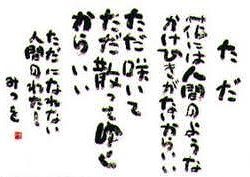 ただ
花には人間のような
かけひきがないからいい
ただ咲いて
ただ散ってゆく
からいい
ただになれない
人間のわたし
みつを